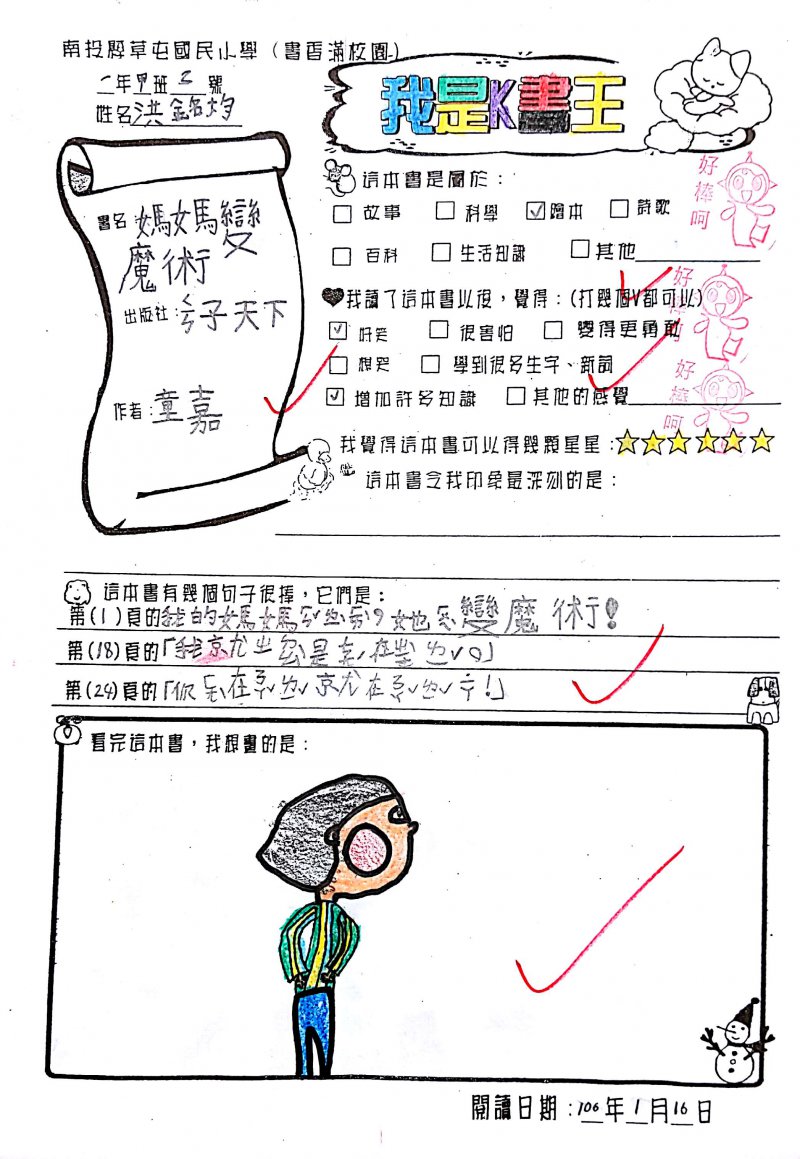 南投縣草屯國民小學（書香滿校園）
一年甲班 號
姓名洪銘均
我是K書王
書名 媽媽變
魔術
出版社：ㄑㄣ子天下
作者：童嘉
這本書是屬於：
□ 故事 □ 科學 ☑ 繪本 □ 詩歌
□ 百科 □ 生活知識 □ 其他
我讀了這本書以後，覺得：(打幾個V都可以)
☑ 好笑 □ 很害怕 □ 變得更勇敢
□ 想哭 □ 學到很多生字、新詞
☑ 增加許多知識 □ 其他的感覺
好棒呵
好棒呵
好棒呵
我覺得這本書可以得幾顆星星：☆☆☆☆☆☆
這本書令我印象最深刻的是：
這本書有幾個句子很棒，它們是：
第(1)頁的我的媽媽 她 變魔術！
第(18)頁的「我 是 在
第(24)頁的「你 在 在 ！」
看完這本書，我想畫的是：
閱讀日期：106年1月16日